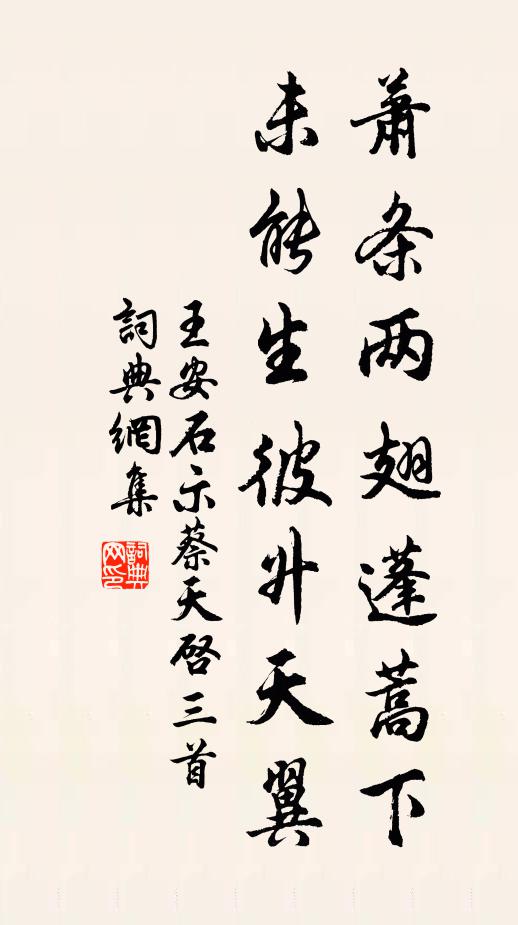 蕭条两翅蓬蒿下
未能生彼升天翼
王安石示蔡天启三首
詞典網集
詞典网印